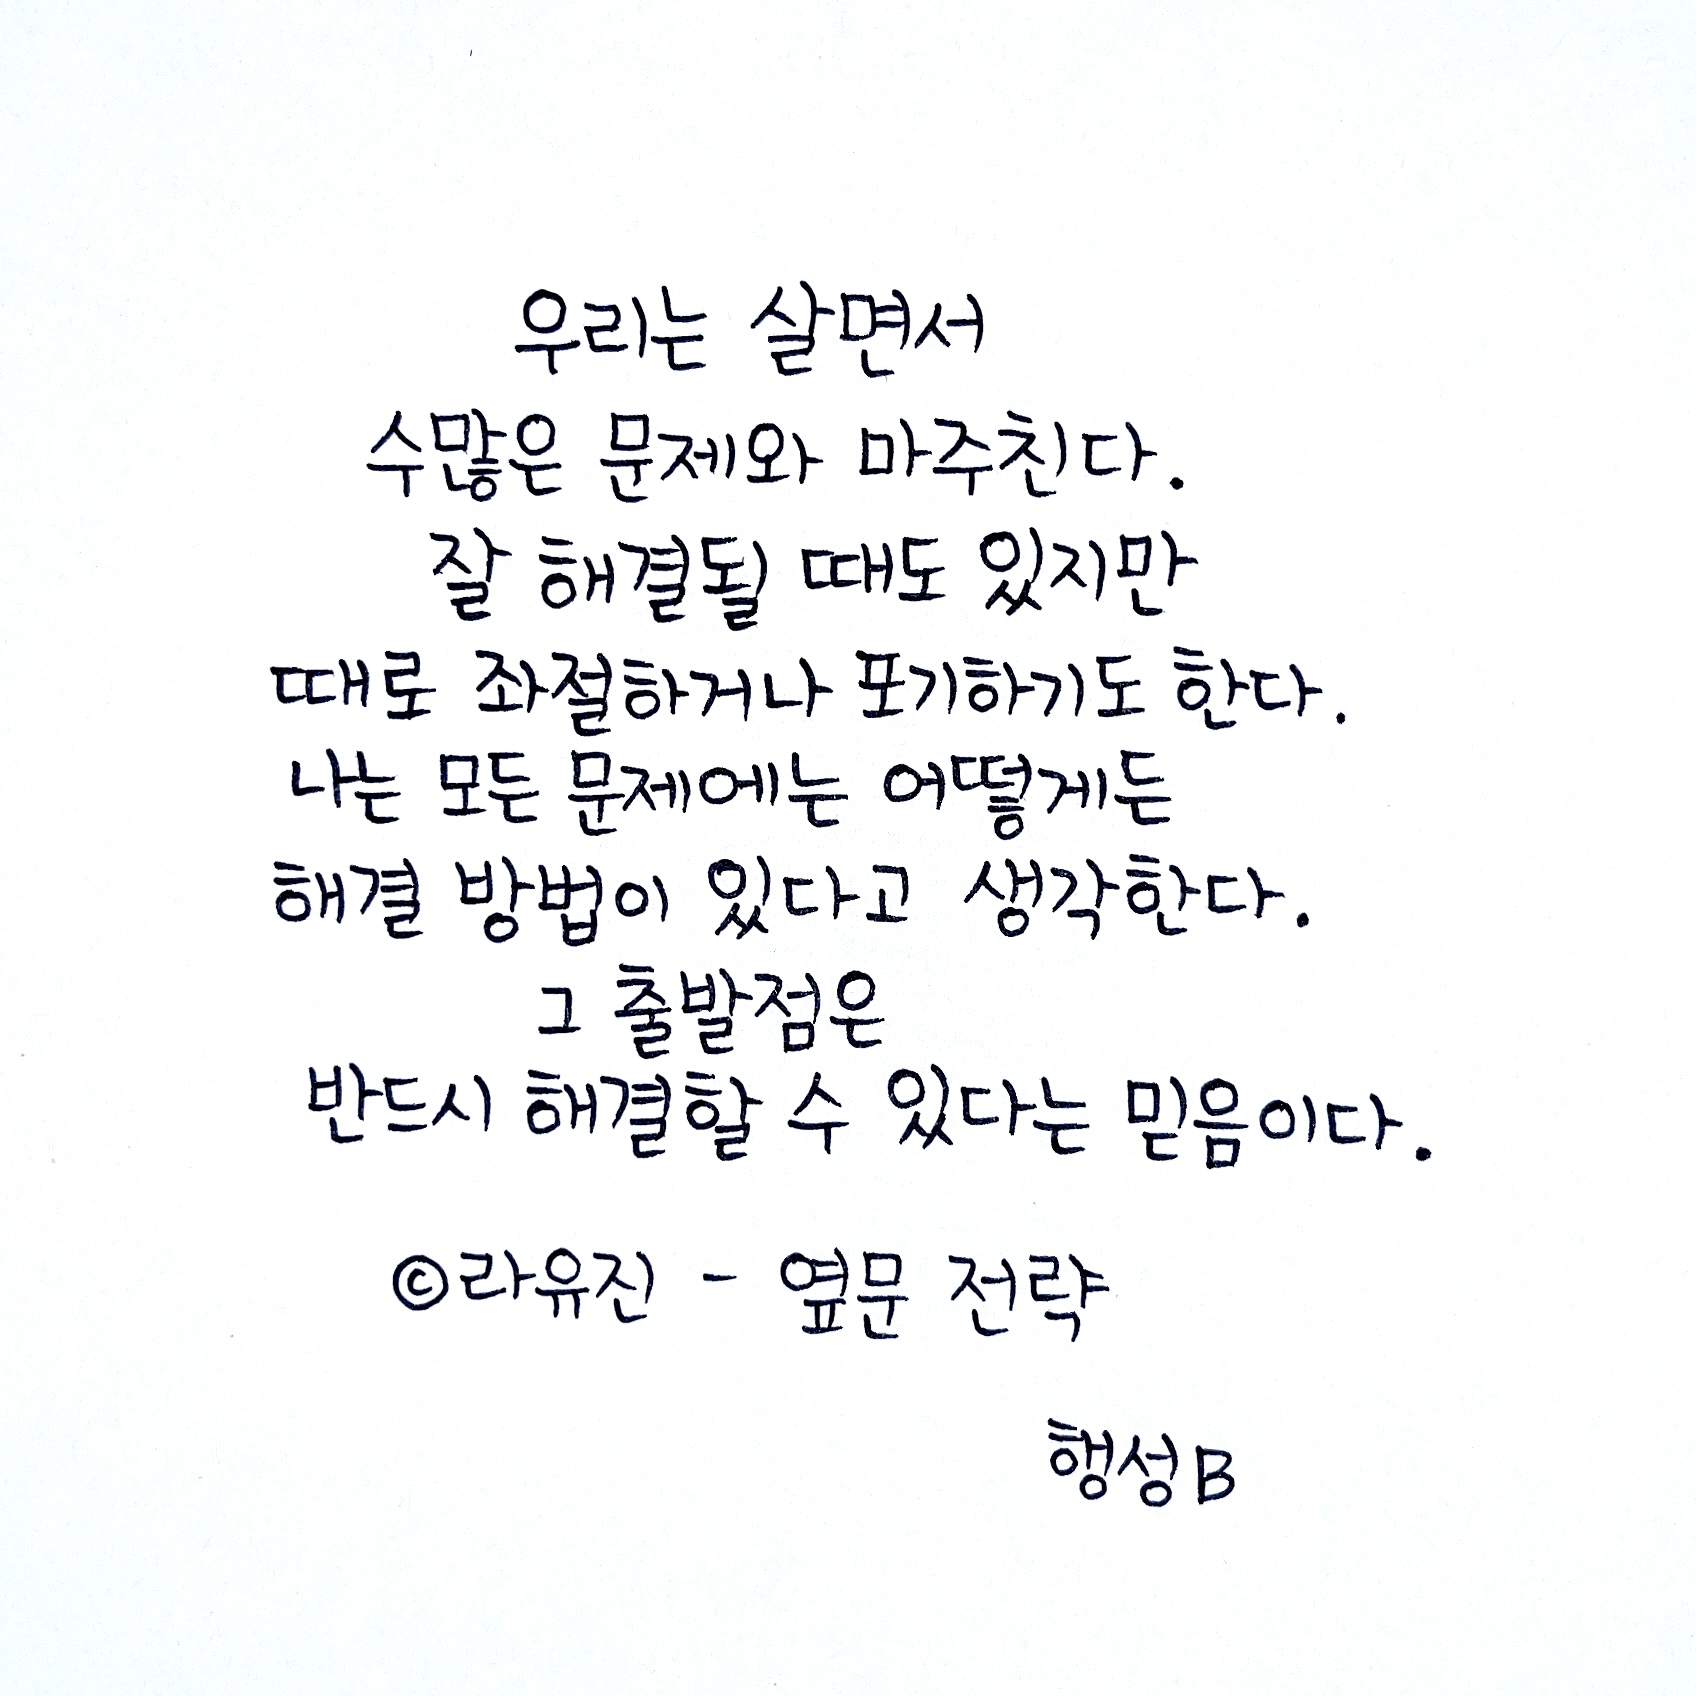 우리는 살면서
수많은 문제와 마주친다.
잘 해결될 때도 있지만
때로 좌절하거나 포기하기도 한다.
나는 모든 문제에는 어떻게든
해결 방법이 있다고 생각한다.
그 출발점은
반드시 해결할 수 있다는 믿음이다.
©라유진 - 옆문 전략
행성B